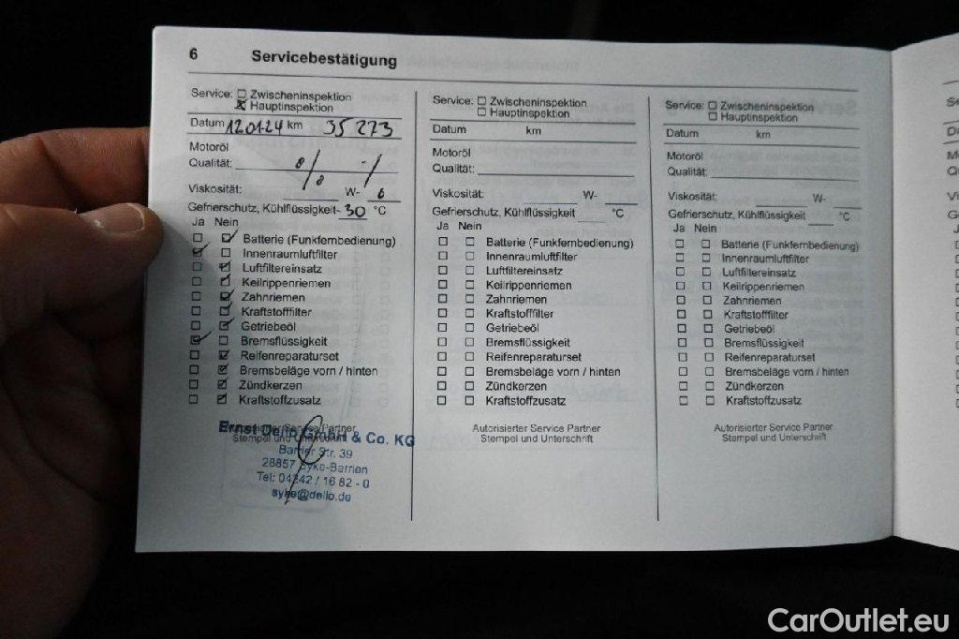 6 Servicebestätigung
Service: Zwischeninspektion
Hauptinspektion
Datum 12.01.24 km 35 273
Motoröl
Qualität:
Viskosität: W-
Gefrierschutz, Kühlflüssigkeit- 30 °C
Ja Nein
Batterie (Funkfernbedienung)
Innenraumluftfilter
Luftfiltereinsatz
Keilrippenriemen
Zahnriemen
Kraftstofffilter
Getriebeöl
Bremsflüssigkeit
Reifenreparaturset
Bremsbeläge vorn / hinten
Zündkerzen
Kraftstoffzusatz
Autorisierter Service Partner
Stempel und Unterschrift
Ernst Dello GmbH & Co. KG
Barrier Str. 39
28857 Syke-Barrien
Tel: 04242 / 16 82 - 0
syke@dello.de
Service: Zwischeninspektion
Hauptinspektion
Datum km
Motoröl
Qualität:
Viskosität: W-
Gefrierschutz, Kühlflüssigkeit °C
Ja Nein
Batterie (Funkfernbedienung)
Innenraumluftfilter
Luftfiltereinsatz
Keilrippenriemen
Zahnriemen
Kraftstofffilter
Getriebeöl
Bremsflüssigkeit
Reifenreparaturset
Bremsbeläge vorn / hinten
Zündkerzen
Kraftstoffzusatz
Autorisierter Service Partner
Stempel und Unterschrift
Service: Zwischeninspektion
Hauptinspektion
Datum km
Motoröl
Qualität:
Viskosität: W-
Gefrierschutz, Kühlflüssigkeit °C
Ja Nein
Batterie (Funkfernbedienung)
Innenraumluftfilter
Luftfiltereinsatz
Keilrippenriemen
Zahnriemen
Kraftstofffilter
Getriebeöl
Bremsflüssigkeit
Reifenreparaturset
Bremsbeläge vorn / hinten
Zündkerzen
Kraftstoffzusatz
Autorisierter Service Partner
Stempel und Unterschrift
CarOutlet.eu